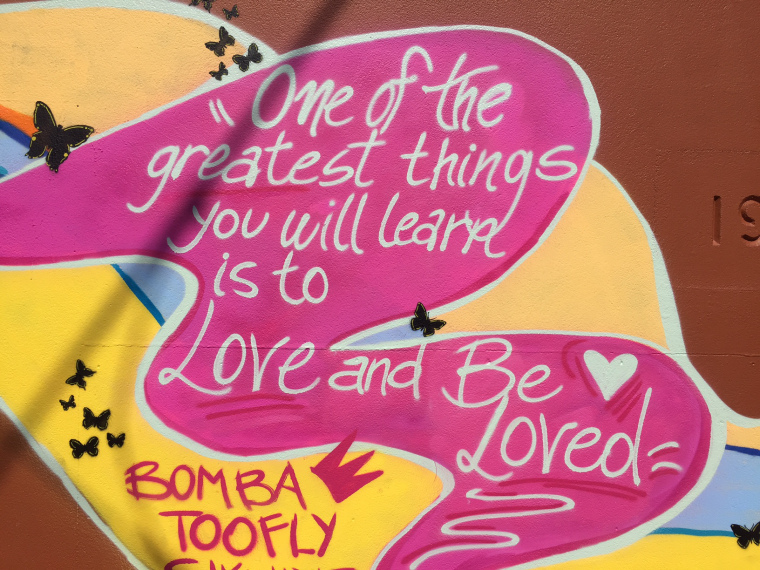 "One of the
greatest things
you will learn
is to
Love and Be
Loved"
BOMBA
TOOFLY
19